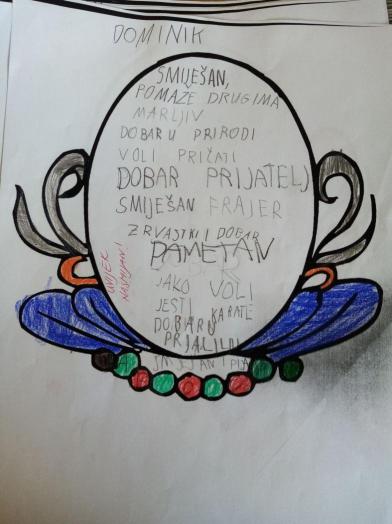 DOMINIK
SMIJEŠAN,
POMAŽE DRUGIMA
MARLJIV
DOBAR U PRIRODI
VOLI PRIČATI
DOBAR PRIJATELJ
SMIJEŠAN FRAJER
I DOBAR
PAMETAN
JAKO VOLI
JESTI KARATE
DOBAR U
UVIJEK
NASMIJAN!